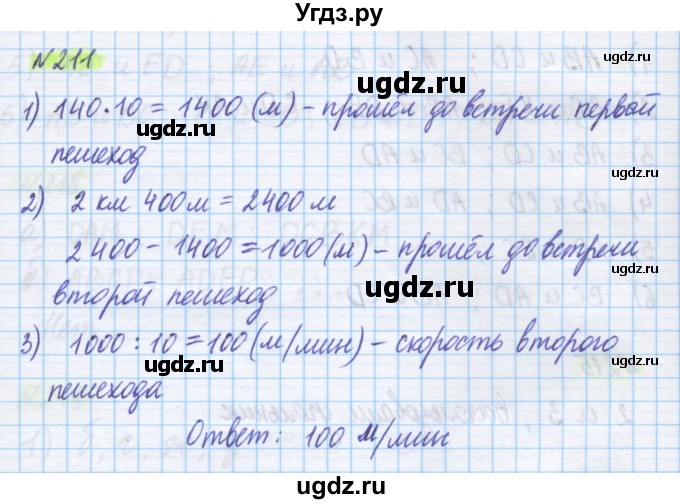 Угдз.ру
№211
1) 140·10 = 1400 (м) – прошёл до встречи первый
пешеход
2) 2 км 400м = 2400 м
2400 – 1400 = 1000 (м) – прошёл до встречи
второй пешеход
3) 1000 : 10 = 100 (м/мин) – скорость второго
пешехода
Ответ: 100 м/мин
ugdz.ru
ugdz.ru
ugdz.ru
ugdz.ru
ugdz.ru
ugdz.ru
ugdz.ru
ugdz.ru
ugdz.ru